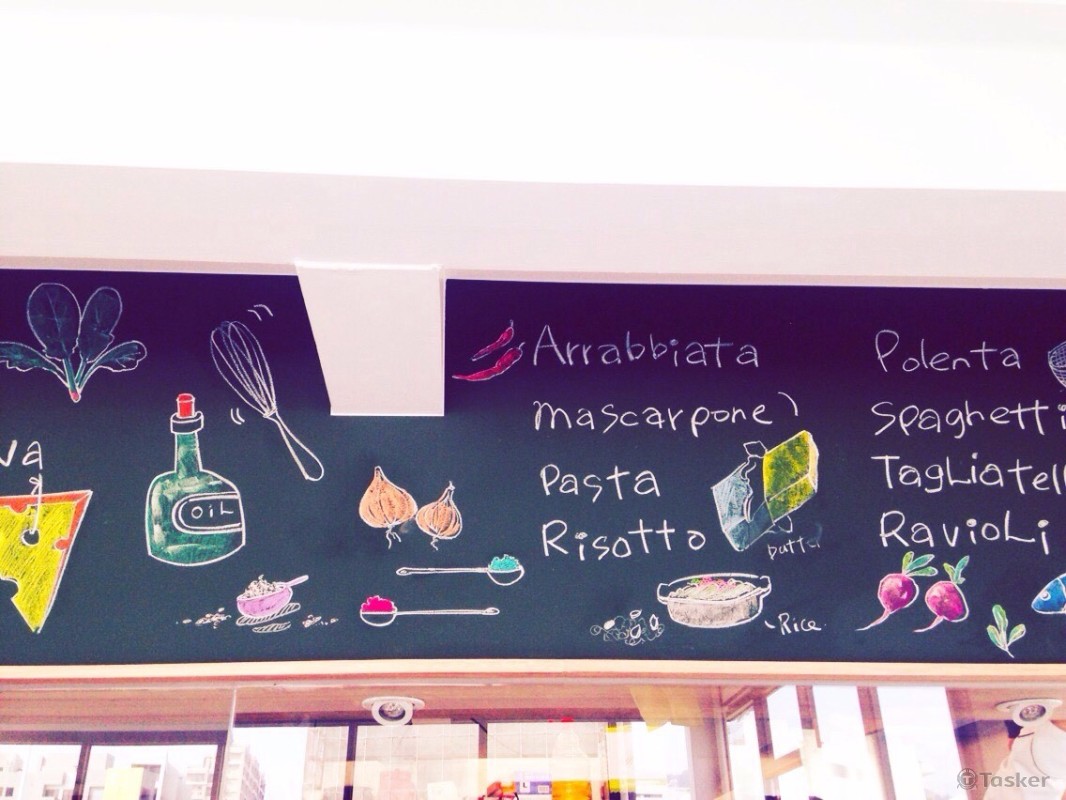 va
OiL
Arrabbiata
mascarpone
Pasta
Risotto
butter
Rice
Polenta
Spaghetti
TagLiatell
RavioLi
Tasker